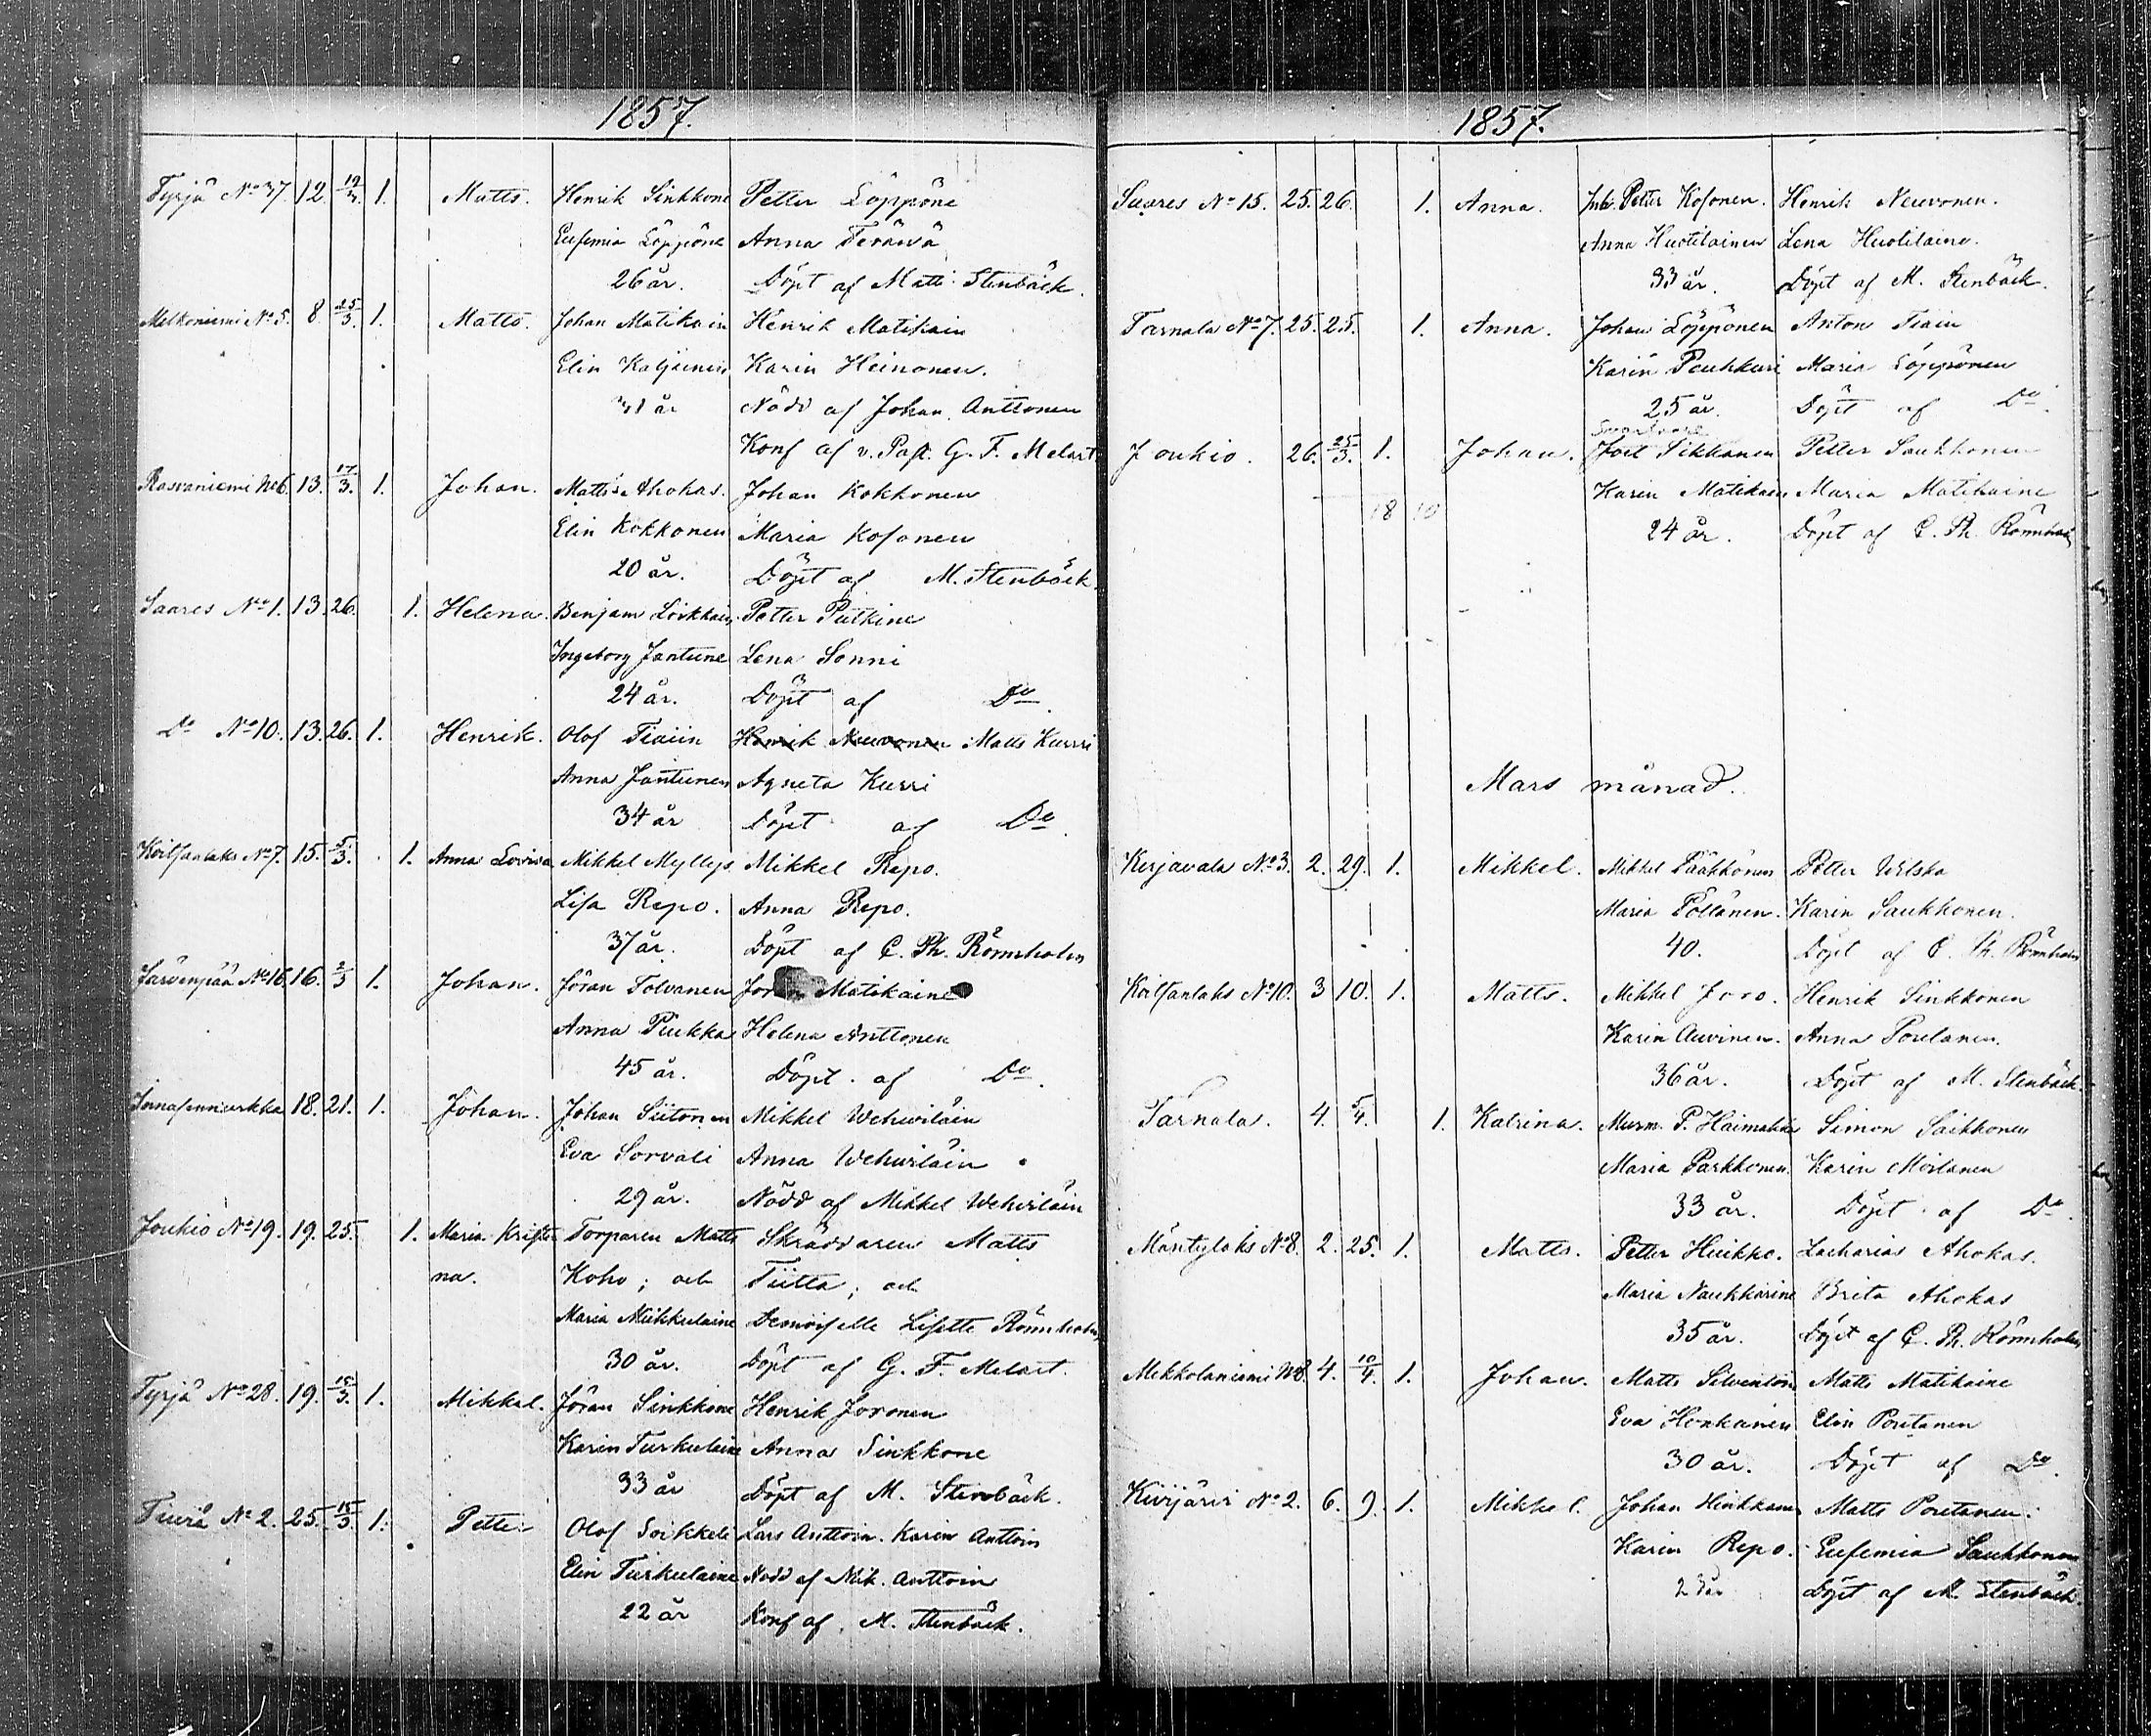 1857.
Tyrjä No 37. 12. 19/4. 1. Matts. Henrik Sinkkone Petter Löppöne
Eufemia Löppöne Anna Teräwä
26 år. Döpt af Matts Stenbäck.
No 5. 8 25/3. 1. Matts. Johan Matikain Henrik Matikain
Elin Karin Heinonen.
31 år Nödd af Johan Anttonen
Konf af v. Past. G. F. Melart
Rasvaniemi No 6. 13. 17/3. 1. Johan. Matts Ahokas. Johan Kokkonen
Elin Kokkonen Maria Kosonen
20 år. Döpt af M. Stenbäck.
Saares No 1. 13. 26. 1. Helena. Benjam Petter Putkine
Ingeborg Jantune Lena Sonni
24 år. Döpt af Do.
Do No 10. 13. 26. 1. Henrik. Olof Tiain Henrik Neuvonen Matts Kurri
Anna Jantunen Agneta Kurri
34 år Döpt af Do.
Koitsanlaks No 7. 15. 5/3. 1. Anna Lovisa Mikkel Myllys Mikkel Repo.
Lisa Repo. Anna Repo.
37 år. Döpt af C. Th. Rönnholm
Järvenpää No 16. 16. 2/3 1. Johan. Jöran Tolvanen Matikaine
Anna Piukka Helena Anttonen
45 år. Döpt af Do.
18. 21. 1. Johan. Johan Siitonen Mikkel Wehviläin
Eva Sorvali Anna Wehviläin
29 år. Nödd af Mikkel Wehviläin
Joukio No 19. 19. 25. 1. Maria Kristi- Torparen Matts Skräddaren Matts
na. Koho; och Tiitta; och
Maria Miikkulaine Demoiselle Lisette Rönnholm
30 år. Döpt af G. F. Melart.
Tyrjä No 28. 19. 15/3. 1. Mikkel. Jöran Sinkkone Henrik Joronen
Karin Turkulaine Anna Sinkkone
33 år Döpt af M. Stenbäck.
Tiurä No 2. 25. 15/3. 1. Petter Olof Soikkeli Lars Anttoin. Karin Anttoin
Elin Turkulaine Nödd af Mik. Anttoin
22 år Konf af M. Stenbäck.
1857.
Saares No 15. 25. 26. 1. Anna. Inh. Petter Kosonen. Henrik Neuvonen.
Anna Huotilainen Lena Huotilaine.
33 år. Döpt af M. Stenbäck.
Tarnala No 7. 25. 25. 1. Anna. Johan Löppönen Anton Tiain
Karin Peuhkuri Maria Löppönen
25 år. Döpt af Do.
Joukio. 26. 25/3. 1. Johan. Pekkanen Petter Saukkonen
Karin Matikain Maria Matikaine
24 år. Döpt af C. Th. Rönnholm
Mars månad.
Kirjavala No 3. 2. 29. 1. Mikkel. Mikkel Pääkkönen Petter Wilska
Maria Pöllänen. Karin Saukkonen.
40. Döpt af C. Th. Rönnholm
Koitsanlaks No 10. 3 10. 1. Matts. Mikkel Joro. Henrik Sinkkonen
Karin Auvinen. Anna Poutanen.
36 år. Döpt af M. Stenbäck.
Tarnala. 4. 5/4. 1. Katrina. Murm. P. Simon Saikkonen
Maria Parkkonen. Karin Moilanen
33 år. Döpt af Do.
Mäntylaks No 8. 2. 25. 1. Matts. Petter Huikko. Zacharias Ahokas.
Maria Naukkarine Brita Ahokas
35 år. Döpt af C. Th. Rönnholm
Mikkolaniemi No 8. 4. 10/4. 1. Johan. Matts Silventoin Matts Matikaine
Eva Honkanen Elin Poutanen
30 år. Döpt af Do.
Kivijärvi No 2. 6. 9. 1. Mikkel. Johan Hinkkanen Matts Poutanen.
Karin Repo. Eufemia Saukkonen
Döpt af M. Stenbäck.